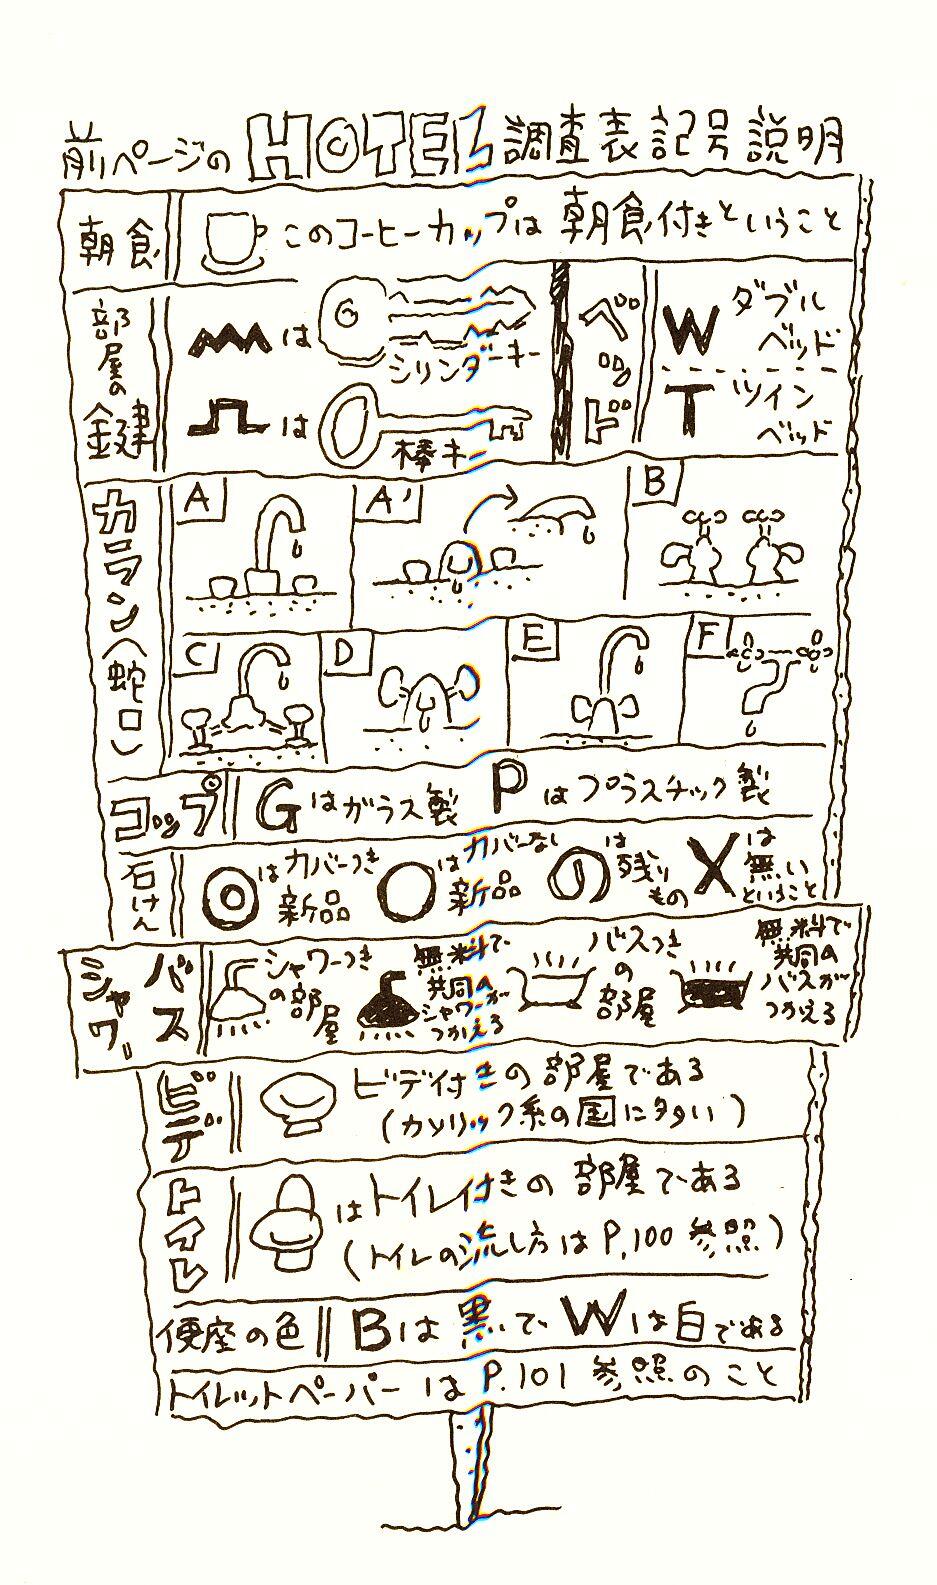 前ページの HOTEL 調査表記号説明
朝食
このコーヒーカップは 朝食付きということ
部屋の鍵
は
シリンダーキー
は
棒キー
ベッド
W ダブルベッド
T ツインベッド
カラン(蛇口)
A
A'
B
C
D
E
F
コップ
Gはガラス製 Pはプラスチック製
石けん
◎はカバーつき新品
○はカバーなし新品
のは残りもの
Xは無いということ
バス
シャワー
シャワーつきの部屋
無料で共同のシャワーがつかえる
バスつきの部屋
無料で共同のバスがつかえる
ビデ
ビデ付きの部屋である
(カソリック系の国に多い)
トイレ
はトイレ付きの部屋である
(トイレの流し方はP.100参照)
便座の色
Bは黒で Wは白である
トイレットペーパーはP.101参照のこと